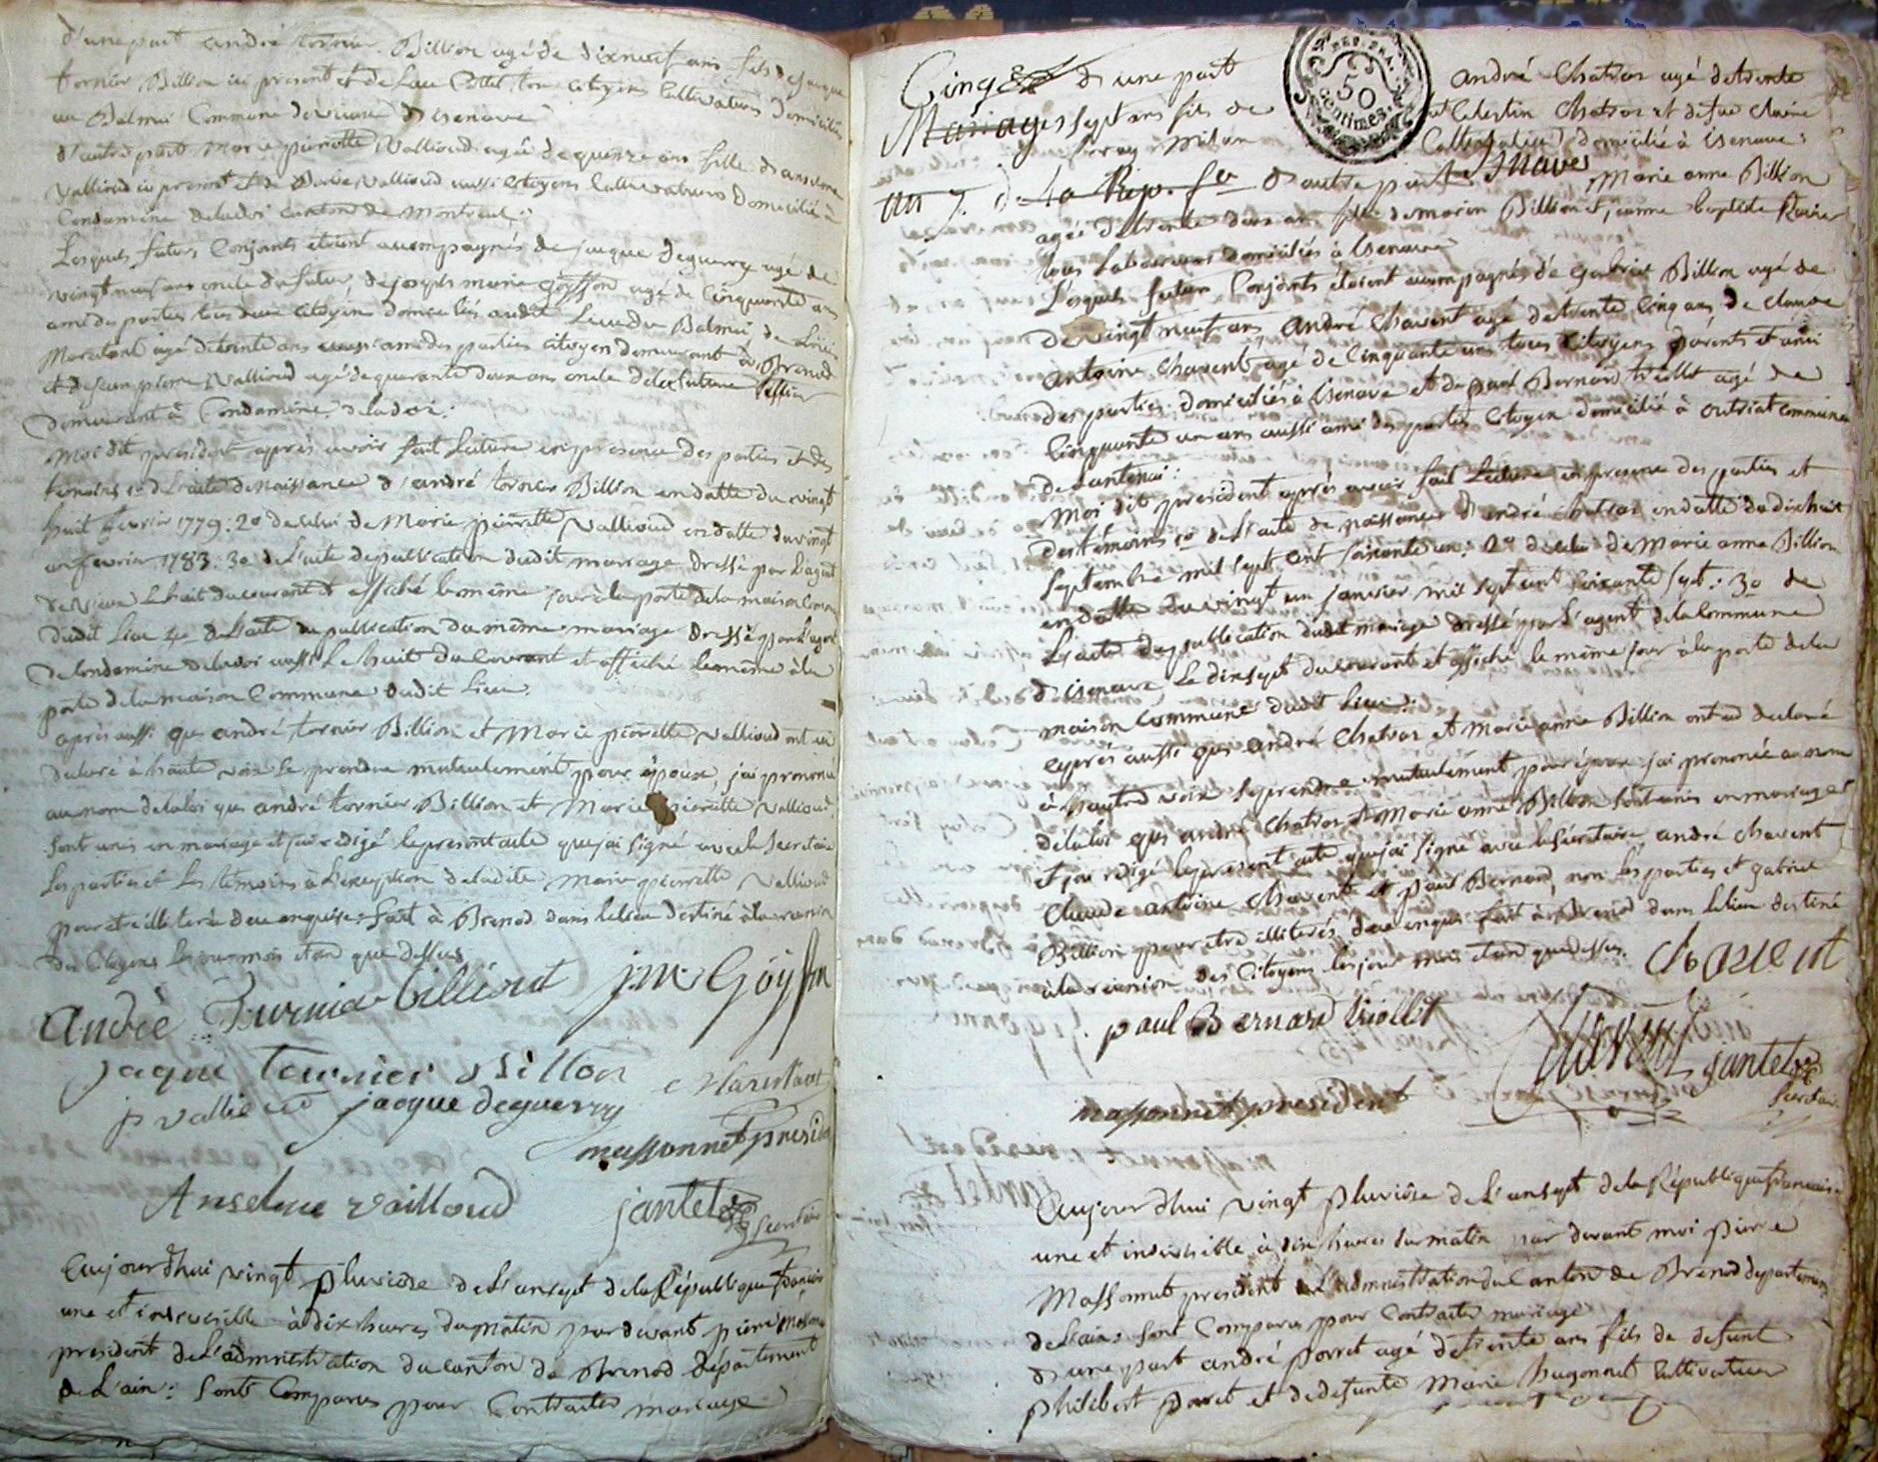 d'une part andré tornier Billion agé de dixneuf ans fils de jacque
tornier Billion ici present et de Luce Collet tous citoyens Cultivateurs domiciliés
au Balmai Commune de vieux d'isenave
d'autre part Marie pierrette Vallioud agée de quinze ans fille d'anselme
Vallioud ici present et de Vallioud aussi citoyens Cultivateurs domiciliés à
Condamine deladoi canton de Montreal:
Lesquels futurs Conjoints etoient accompagnés de jacque deguerry agé de
vingt neuf ans oncle du futur, de joseph marie goyffon agé de Cinquante ans
ami des parties tous deux citoyens domiciliés audit Lieu du Balmai de
Maretant agé de trente ans ami des parties citoyen demeurant à Brenod
et de jean pierre Vallioud agé de quarante deux ans oncle de la future
demeurant à Condamine deladoi:
Moi dit president après avoir fait Lecture en presence des parties et des
temoins 1o de l'acte de naissance d'andré tornier Billion en datte du vingt
huit fevrier 1779: 2o de celui de Marie pierrette Vallioud en datte du vingt
un fevrier 1783: 3o de L'acte de publication dudit mariage dressé par L'agent
de vieux le huit du courant et affiché le même jour à la porte de la maison Commune
dudit Lieu 4o de L'acte de publication du même mariage dressé par L'agent
de Condamine deladoi aussi Le huit du Courant et affiché le même à la
porte de la maison Commune dudit Lieu.
après aussi que andré tornier Billion et Marie pierrette Vallioud ont eu
declaré à haute voix se prendre mutuellement pour époux, j'ai prononcé
au nom de la loi que andré tornier Billion et Marie pierrette Vallioud
sont unis en mariage et j'ai redigé le present acte que j'ai signé avec le Secretaire
Les parties et Les temoins à L'exception de ladite Marie pierrette Vallioud
pour etre illiterée de ce enquise: fait à Brenod dans le lieu destiné à la reunion
des Citoyens les jour mois et an que dessus
andrè Turnier billiond j.m. Goyffon
jaque tournier Billon c Maretant
p vallioud jacque deguerry
massonnet president
Anselme Vailloud jantet Secretaire
Aujourdhui vingt pluviose de L'an sept de la République françoise
une et indivisible à dix heures du matin par devant pierre Massonnet
president de L'administration du canton de Brenod département
de L'ain: Sont Comparus pour Contracter mariage
Cinq d'une part andré Chatron agé de trente
Mariages sept ans fils de Celestin Chatron et de fue Claire
REP. FRA. 50 Centimes.
Cultivateur domicilié à isenave:
an 7. de La Rep. fse D'autre part Marie anne Billion
agée de trente deux ans fille de marin Billion et jeanne baptiste
tous Laboureurs domiciliés à isenave
Lesquels futurs Conjoints étoient accompagnés de gabriel Billion agé de
vingt neuf ans, André Chavent agé de trente Cinq ans, de claude
antoine Chavent, agé de Cinquante un tous Citoyens parents et amis
des parties domiciliés à isenave et de paul Bernard triollet agé de
Cinquante un ans aussi ami des parties Citoyen domicilié à outriat commune
de Lantenai:
Moi dit president après avoir fait Lecture en presence des parties et
des temoins 1o de L'acte de naissance d'andré Chatron en datte du dix huit
septembre mil sept cent soixante un: 2o de celui de Marie anne Billion
en datte du vingt un janvier mil sept cent soixante sept: 3o de
L'acte de publication dudit mariage dressé par L'agent de la Commune
d'isenave Le dix sept du courant et affiché le même jour à la porte de la
maison Commune dudit Lieu:
après aussi que andré Chatron et Marie anne Billion ont eu declaré
à hautre voix se prendre mutuellement pour époux j'ai prononcé au nom
de la loi que andré Chatron et Marie anne Billion sont unis en mariage
et j'ai redigé le present acte que j'ai signé avec le Secretaire, andré Chavent
Claude antoine Chavent et paul Bernard, non les parties et gabriel
Billion pour etre illiterés de ce enquis fait à Brenod dans le lieu destiné
à la reunion des Citoyens les jour mois et an que dessus. chavent
paul Bernard triollet
jantet
massonnet president Secretaire
Aujourdhui vingt pluviôse de L'an sept de la République francaise
une et indivisible à dix heures du matin par devant moi pierre
Massonnet president de L'administration du Canton de Brenod departement
de L'ain: sont Comparus pour Contracter mariage
D'une part andré porret agé de trente ans fils de defunt
philibert porret et de defunte Marie hugonnet Cultivateur